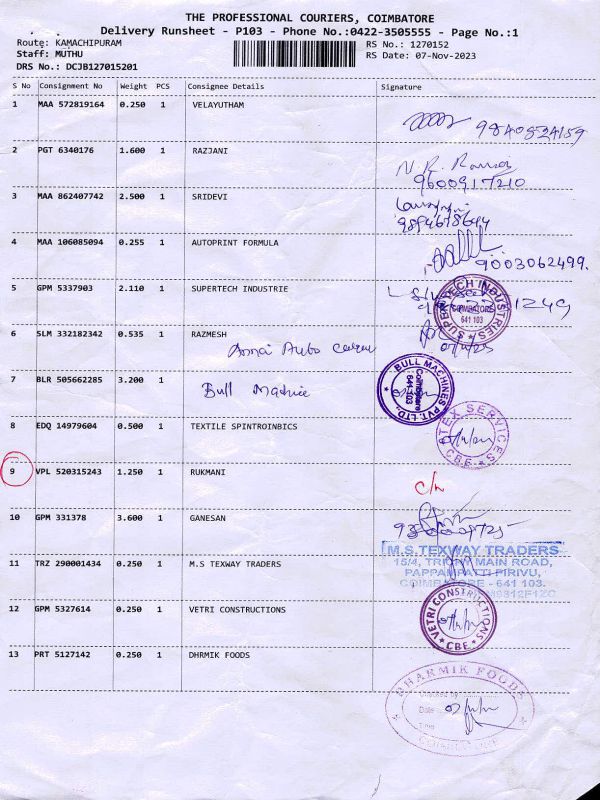 THE PROFESSIONAL COURIERS, COIMBATORE
Delivery Runsheet - P103 - Phone No.:0422-3505555 - Page No.:1
Route: KAMACHIPURAM RS No.: 1270152
Staff: MUTHU RS Date: 07-Nov-2023
DRS No.: DCJB127015201
S No Consignment No Weight PCS Consignee Details Signature
1 MAA 572819164 0.250 1 VELAYUTHAM
9840824159
2 PGT 6340176 1.600 1 RAZJANI
9600917210
3 MAA 862407742 2.500 1 SRIDEVI
9894678644
4 MAA 106085094 0.255 1 AUTOPRINT FORMULA
9003062499.
5 GPM 5337903 2.110 1 SUPERTECH INDUSTRIE
SUPERTECH INDUSTRIES
COIMBATORE
641 103
1249
6 SLM 332182342 0.535 1 RAZMESH
7 BLR 505662285 3.200 1
Bull Machine
BULL MACHINES PVT. LTD.
Coimbatore
641 103
8 EDQ 14979604 0.500 1 TEXTILE SPINTROINBICS
TEX SERVICES
CBE
9 VPL 520315243 1.250 1 RUKMANI
C/n
10 GPM 331378 3.600 1 GANESAN
11 TRZ 290001434 0.250 1 M.S TEXWAY TRADERS
M.S.TEXWAY TRADERS
15/4, TRICHY MAIN ROAD,
PAPPAMPATTI PIRIVU,
COIMBATORE - 641 103.
12 GPM 5327614 0.250 1 VETRI CONSTRUCTIONS
VETRI CONSTRUCTIONS
CBE
13 PRT 5127142 0.250 1 DHRMIK FOODS
DHARMIK FOODS
Checked by
Date
Time
COIMBATORE